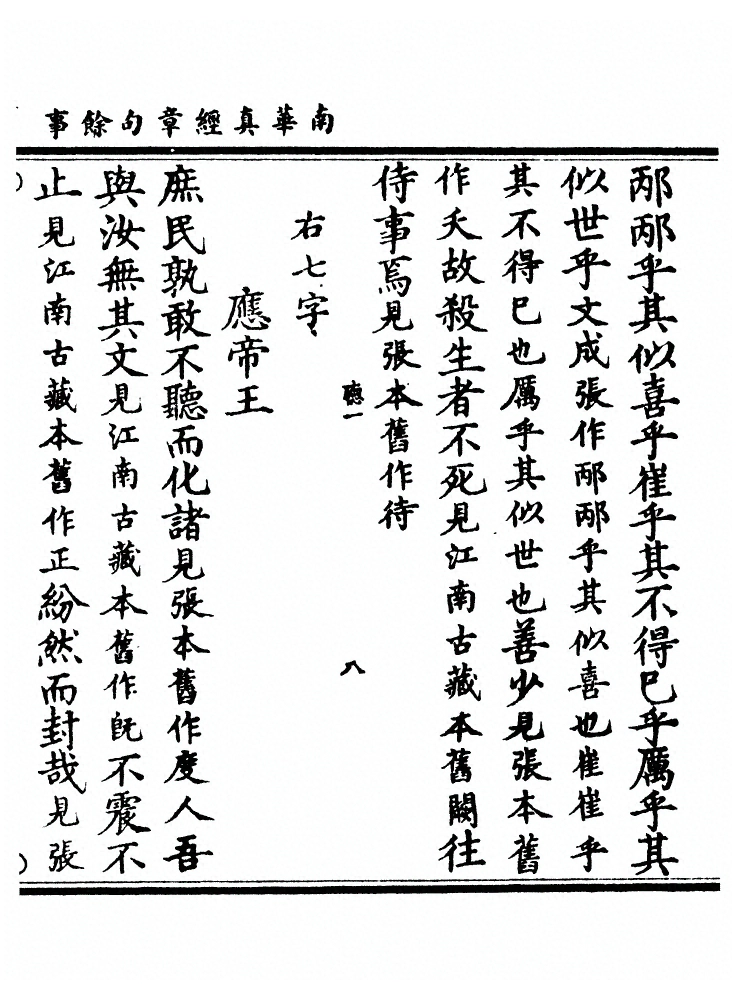 南華真經章句餘事
邴邴乎其似喜乎崔乎其不得已乎厲乎其
似世乎文成張作邴邴乎其似喜也崔崔乎
其不得已也厲乎其似世也善少見張本舊
作夭故殺生者不死見江南古藏本舊闕往
侍事焉見張本舊作待
聽一
八
右七字
應帝王
庶民孰敢不聽而化諸見張本舊作度人吾
與汝無其文見江南古藏本舊作旣不震不
止見江南古藏本舊作正紛然而封哉見張